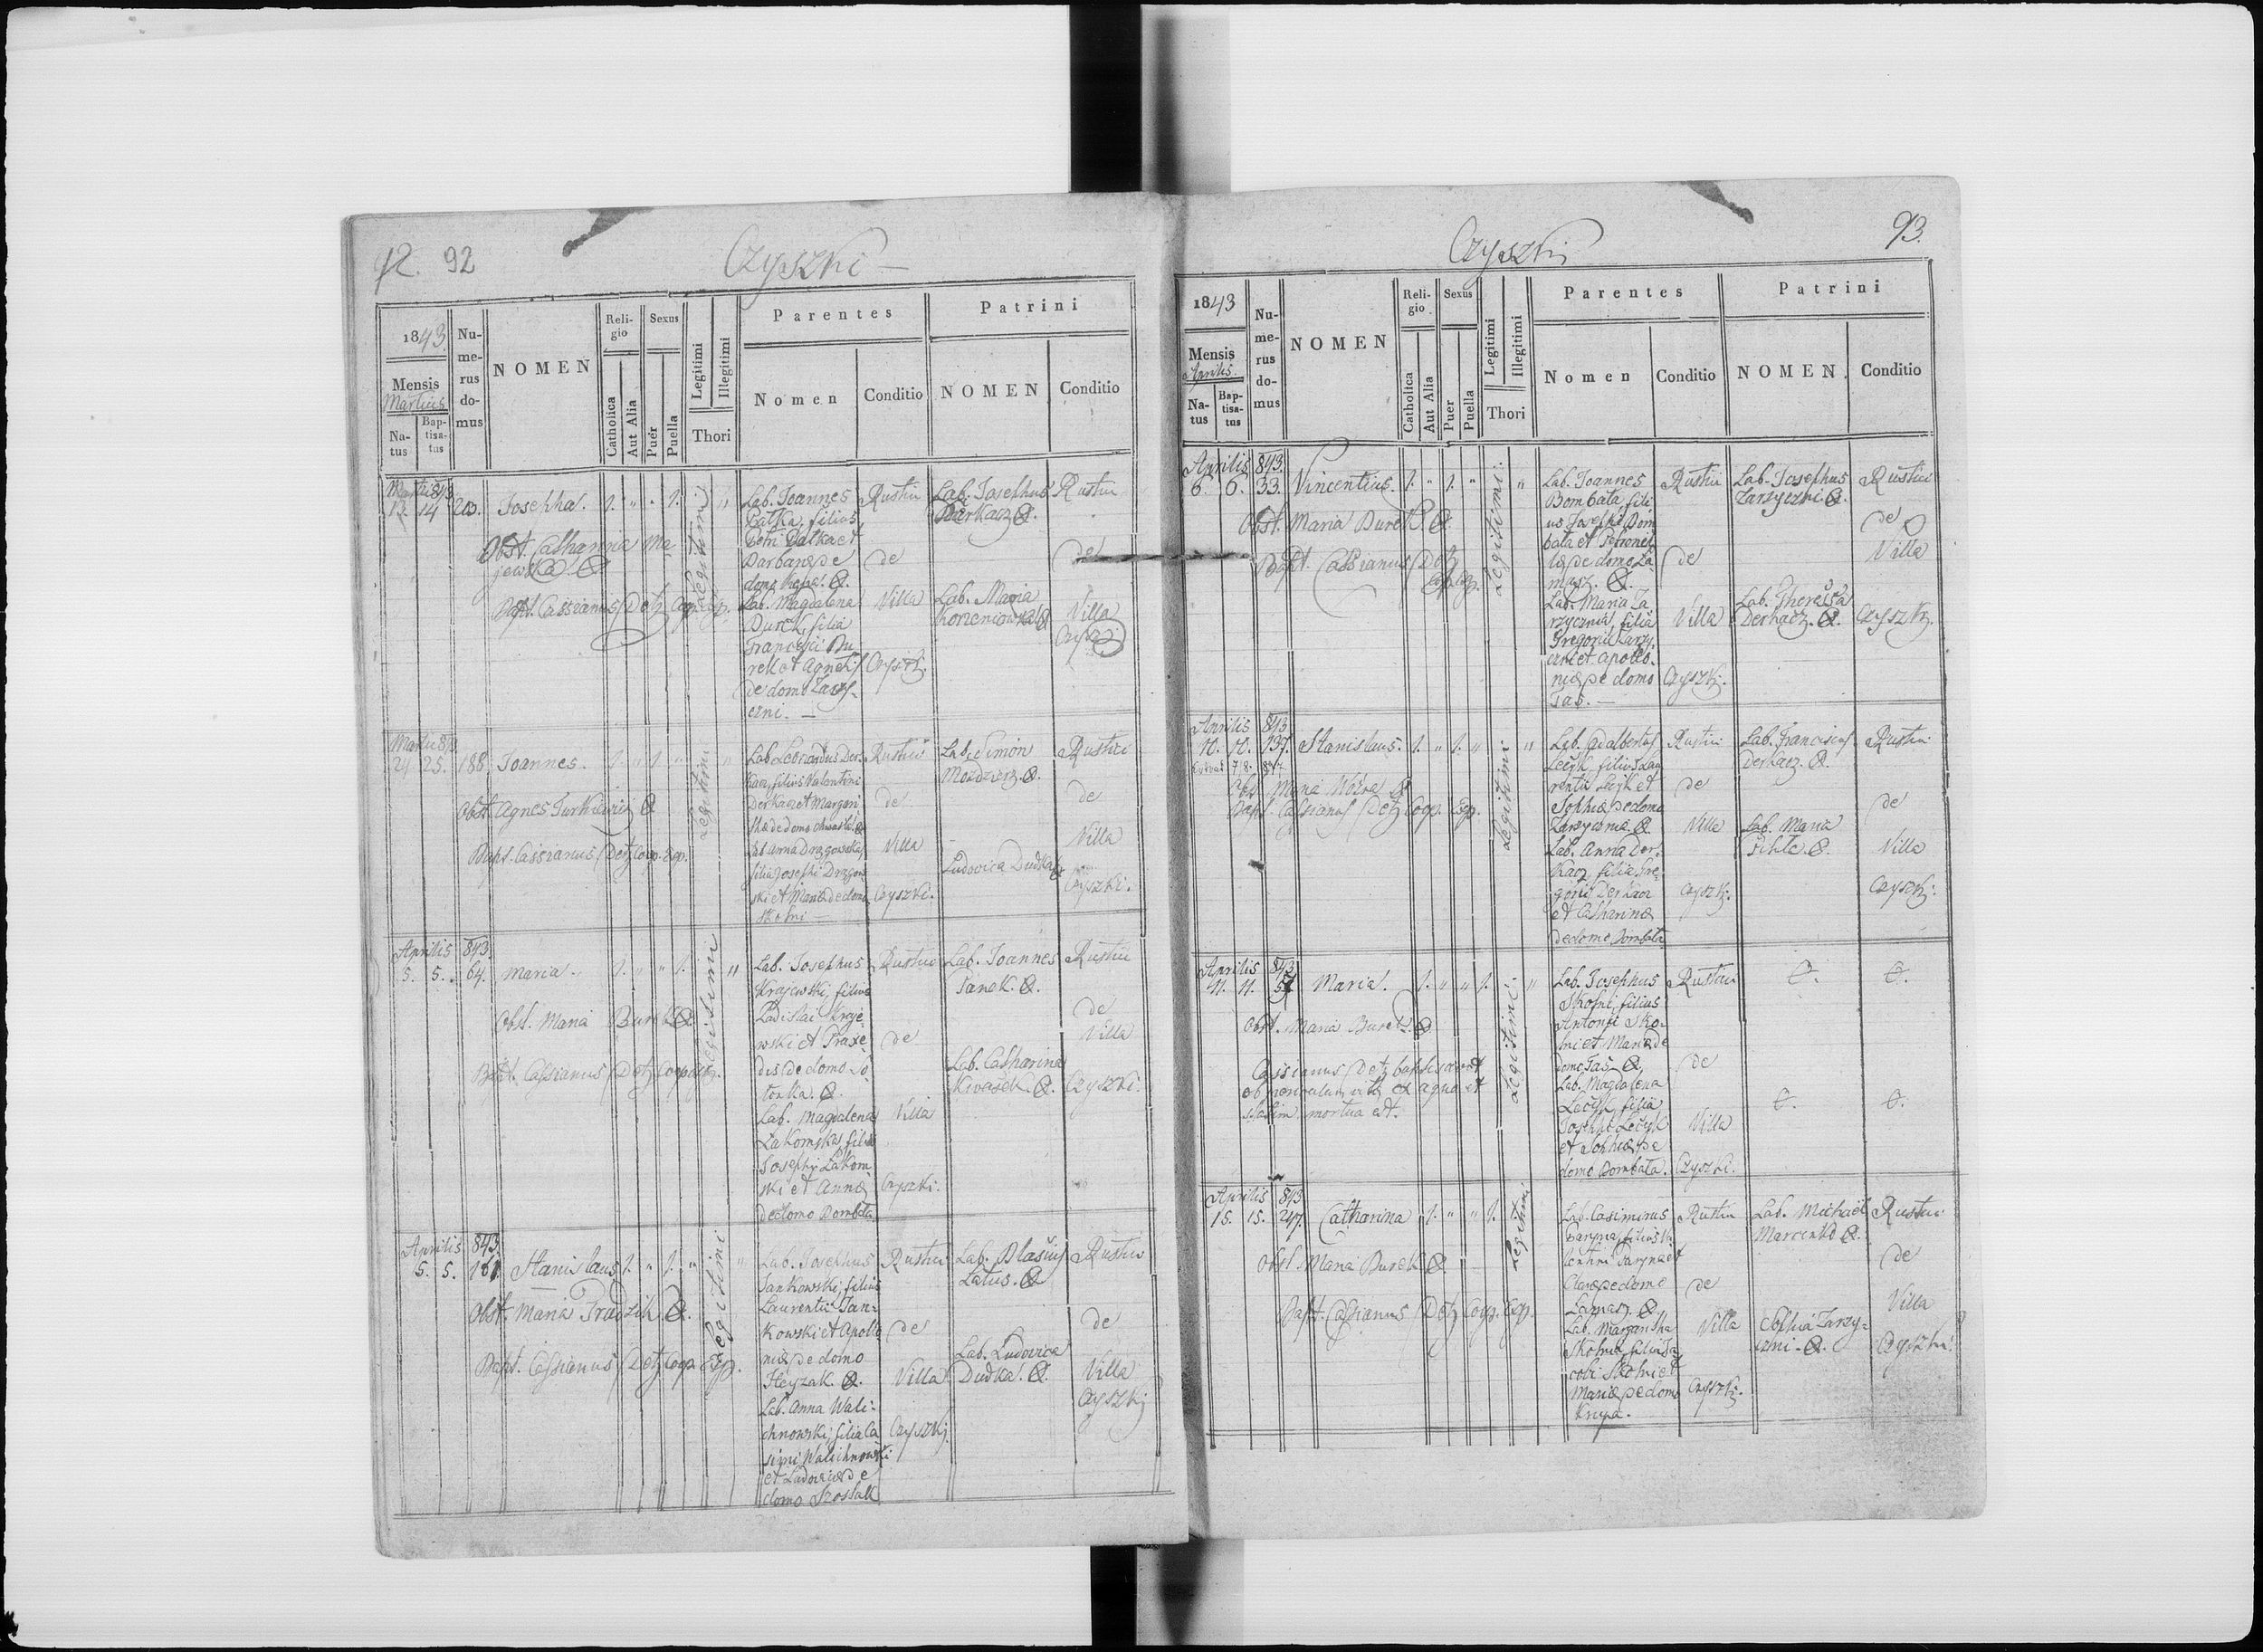 12. 92
Czyszki
1843
Mensis
Martius
Na-
tus
Bap-
tisa-
tus
Nu-
me-
rus
do-
mus
NOMEN
Reli-
gio
Catholica
Aut Alia
Sexus
Puer
Puella
Legitimi
Illegitimi
Thori
Parentes
Nomen
Conditio
Patrini
NOMEN
Conditio
Martii 843
14 203. Josepha. 1. " " 1. Legitimi "
Obst. Catharina Ma-
jewska
Bapt. Cassianus Detz Coop. Exp.
Lab. Joannes
Palka, filius
Petri Palka et
Barbaræ de
domo
Lab. Magdalena
Burek, filia
Francisci Bu
rek et Agnetis
de domo Zarzy-
czni.
Rustici
de
Villa
Czyszki.
Lab. Josephus
Derkacz
Lab. Maria
Korzeniowska
Rustici
de
Villa
Czyszki
Martii 843
24 25. 188. Joannes. 1. " 1. " Legitimi "
Obst. Agnes Turkiewicz
Bapt. Cassianus Detz Coop. Exp.
Lab. Leonardus Der-
kacz, filius Valentini
Derkacz et Margari
thæ de domo
Lab. Anna Drzgowska,
filia Josephi Drzgow
ski et Mariæ de domo
Skolni
Rustici
de
Villa
Czyszki.
Lab. Simon
Moździerz.
Ludovica Dudka
Rustici
de
Villa
Czyszki.
Aprilis 843.
5. 5. 64. Maria. 1. " " 1. Legitimi "
Obst. Maria Burek
Bapt. Cassianus Detz Coop. Exp.
Lab. Josephus
Krajewski, filius
Ladislai Kraje-
wski et Praxe-
dis de domo So-
tonka.
Lab. Magdalena
Łakomska, filia
Josephi Łakom
ski et Annæ
de domo Bombała
Rustici
de
Villa
Czyszki.
Lab. Joannes
Panek.
Lab. Catharina
Kwaśek
Rustici
de
Villa
Czyszki.
Aprilis 843.
5. 5. 161. Stanislaus 1. " 1. " Legitimi "
Obst. Maria Pradzik
Bapt. Cassianus Detz Coop. Exp.
Lab. Josephus
Jankowski, filius
Laurentii Jan-
kowski et Apollo
niæ de domo
Heyzak.
Lab. Anna Wali-
chnowski, filia Ca
simi Walichnowski
et Ludovicæ de
domo Szostak
Rustici
de
Villa
Czyszki.
Lab. Blasius
Latus.
Lab. Ludovica
Dudka.
Rustici
de
Villa
Czyszki
93.
Czyszki
1843
Mensis
Aprilis.
Na-
tus
Bap-
tisa-
tus
Nu-
me-
rus
do-
mus
NOMEN
Reli-
gio
Catholica
Aut Alia
Sexus
Puer
Puella
Legitimi
Illegitimi
Thori
Parentes
Nomen
Conditio
Patrini
NOMEN
Conditio
Aprilis 843.
6. 6. 33. Vincentius. 1. " 1. " Legitimi "
Obst. Maria Burek.
Bapt. Cassianus Detz
Coop. Exp.
Lab. Joannes
Bombała, fili-
us Josephi Bom
bała et Petronel
læ de domo Ła
masz.
Lab. Maria Za
rzyczna, filia
Gregorii Zarzy-
czni et Apollo-
niæ de domo
Taś.
Rustici
de
Villa
Czyszki.
Lab. Josephus
Zarzyczni
Lab. Theressa
Derkacz.
Rustici
de
Villa
Czyszki.
Aprilis 843
10. 10. 137. Stanislaus. 1. " 1. " Legitimi "
Obst. Maria
Bapt. Cassianus Detz Coop. Exp.
Lab. Adalbertus
Leczyk, filius Lau
rentii Leczyk et
Sophiæ de domo
Zarzyczna.
Lab. Anna Der-
kacz, filia Gre-
gorii Derkacz
et Catharinæ
de domo Bombała
Rustici
de
Villa
Czyszki.
Lab. Franciscus
Derkacz.
Lab. Maria
Rustici
de
Villa
Czyszki.
Aprilis 843
11. 11. Maria. 1. " " 1. Legitimi "
Obst. Maria Burek.
Cassianus Detz baptisavit
ob periculum vitæ ex aqua et
statim mortua est.
Lab. Josephus
Skolni, filius
Antonii Sko-
lni et Mariæ de
domo Taś
Lab. Magdalena
Leczyk, filia
Josephi Leczyk
et Sophiæ de
domo Bombała.
Rustici
de
Villa
Czyszki.
Aprilis 843
15. 15. 247. Catharina 1. " " 1. Legitimi
Obst. Maria Burek
Bapt. Cassianus Detz Coop. Exp.
Lab. Casimirus
Baryna, filius Va
lentini Baryna et
Claræ de domo
Łamasz.
Lab. Margaritha
Skolna, filia Ja
cobi Skolni et
Mariæ de domo
Krupa.
Rustici
de
Villa
Czyszki.
Lab. Michael
Marcinko
Sophia Zarzy-
czni.
Rustici
de
Villa
Czyszki.